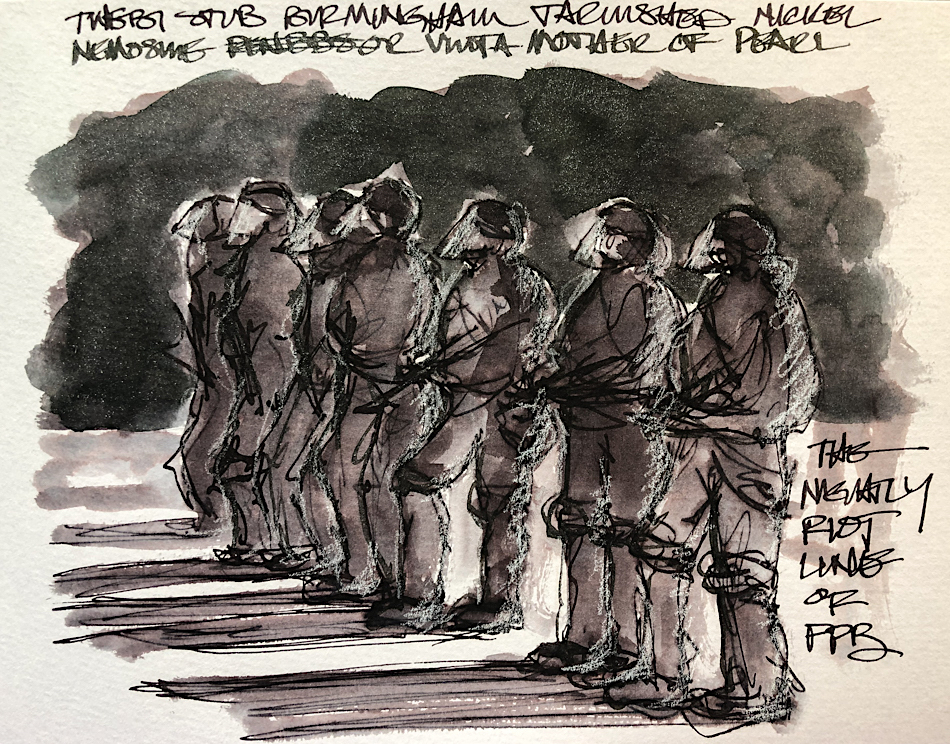 TWSBI STUB BIRMINGHAM TARNISHED NICKEL
NEMOSINE VINTA MOTHER OF PEARL
THE
NIGHTLY
RIOT
LINE
OR
PPB